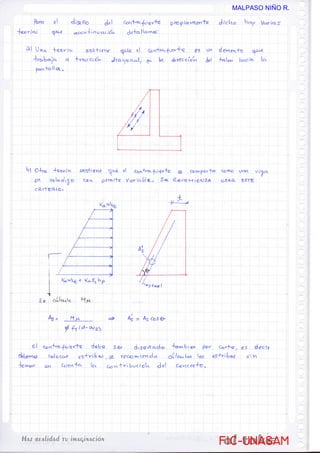 MALPASO NIÑO R.
Para el diseño del contrafuerte propiamente dicho hay varias
teorías que a continuación detallamos:
a) Una teoría sostiene que el contrafuerte es un elemento que
trabaja a tracción diagonal, en la dirección del talon hacia la
pantalla.
b) Otra teoría sostiene que el contrafuerte se comporta como una viga
en voladizo con peralte variable. Se recomienda usar este
criterio.
t
As
θ
Se calcula Mu
As = Mu / φ fy (d-a/2) ⇒ As' = As cosθ
El contrafuerte debe ser diseñado tambien por corte, es decir
debemos colocar estribos, se recomienda calcular los estribos sin
tomar en cuenta la contribución del concreto.
Haz realidad tu imaginación
FIC-UNASAM